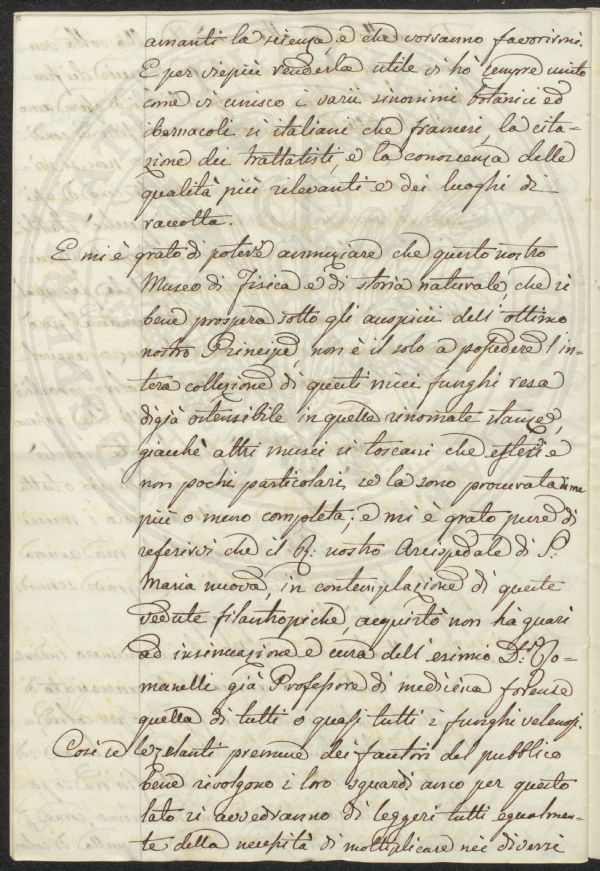 amanti la scienza, e che vorranno favorirmi.
E per viepiù renderla utile vi hò sempre unito
come vi unisco i varii sinonimi botanici ed
vernacoli sì italiani che francesi, la cita-
zione dei trattatisti, e la conoscenza delle
qualità più rilevanti e dei luoghi di
raccolta.
E mi è grato di potere annunziare che questo nostro
Museo di Fisica e di storia naturale, che sì
bene prospera sotto gli auspicii dell'ottimo
nostro Principe, non è il solo a possedere l'in-
tera collezione di questi miei funghi resa
digià ostensibile in quelle rinomate stanze,
giacchè altri musei sì toscani che esteri e
non pochi particolari, se la sono procurata da me
più o meno completa; e mi è grato pure di
riferirvi che il R: nostro Arcispedale di S:
Maria nuova, in contemplazione di queste
vedute filantropiche, acquistò non hà guari
ad insinuazione e cura dell'esimio D.r Ro-
manelli già Professore di medicina forense
quella di tutti o quasi tutti i funghi velenosi.
Così se le zelanti premure dei fautori del pubblico
bene rivolgono i loro sguardi anco per questo
lato si avvedranno di leggeri tutti egualmen-
te della necessità di moltiplicare nei diversi